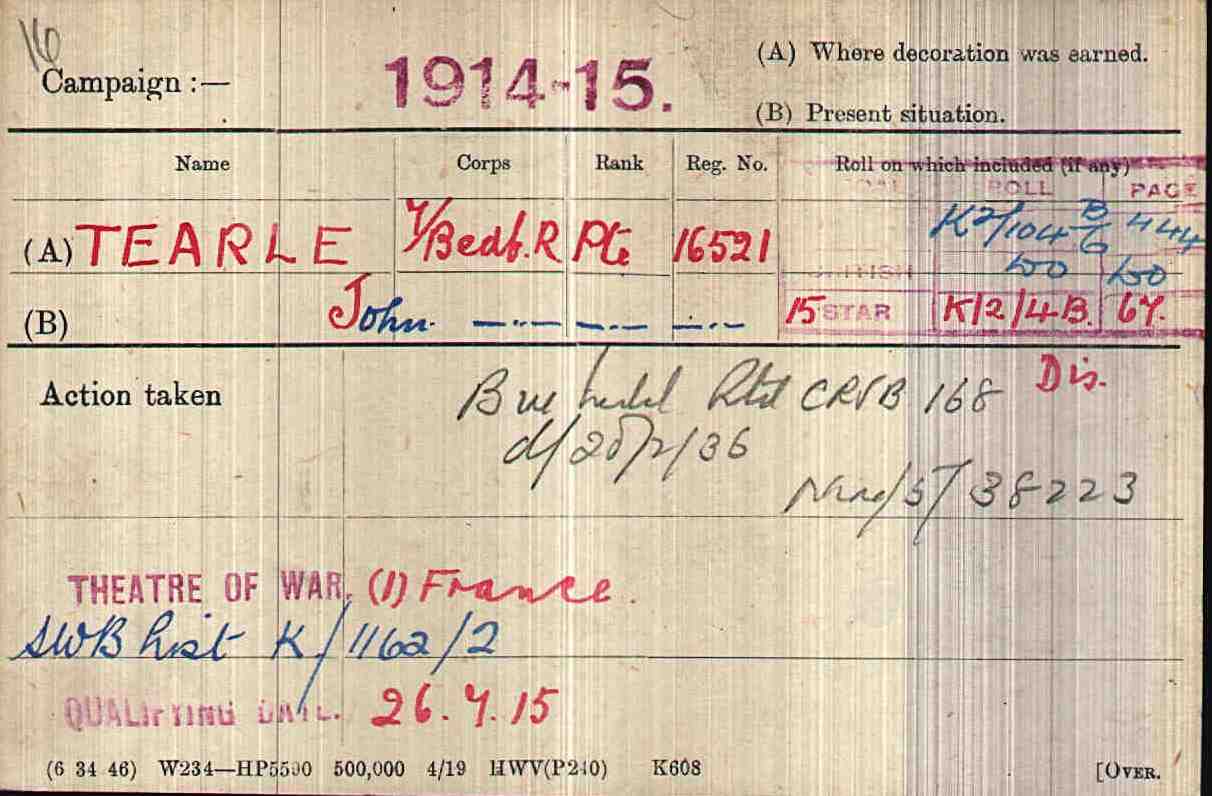 16
Campaign :— 1914-15. (A) Where decoration was earned.
(B) Present situation.
Name Corps Rank Reg. No. Roll on which included (if any)
ROLL PAGE
(A) TEARLE 7/Bedf. R Pte 16521 K2/104 B/6 444
BRITISH DO DO
(B) John. —"— —"— —"— 15 STAR K/2/4B. 67.
Action taken B Vic medal Rtd CRVB 168 Dis.
d/20/2/36
/5/38223
THEATRE OF WAR. (1) France.
SWB List K/1162/2
QUALIFYING DATE. 26.7.15
(6 34 46) W234—HP5590 500,000 4/19 HWV(P240) K608 [OVER.